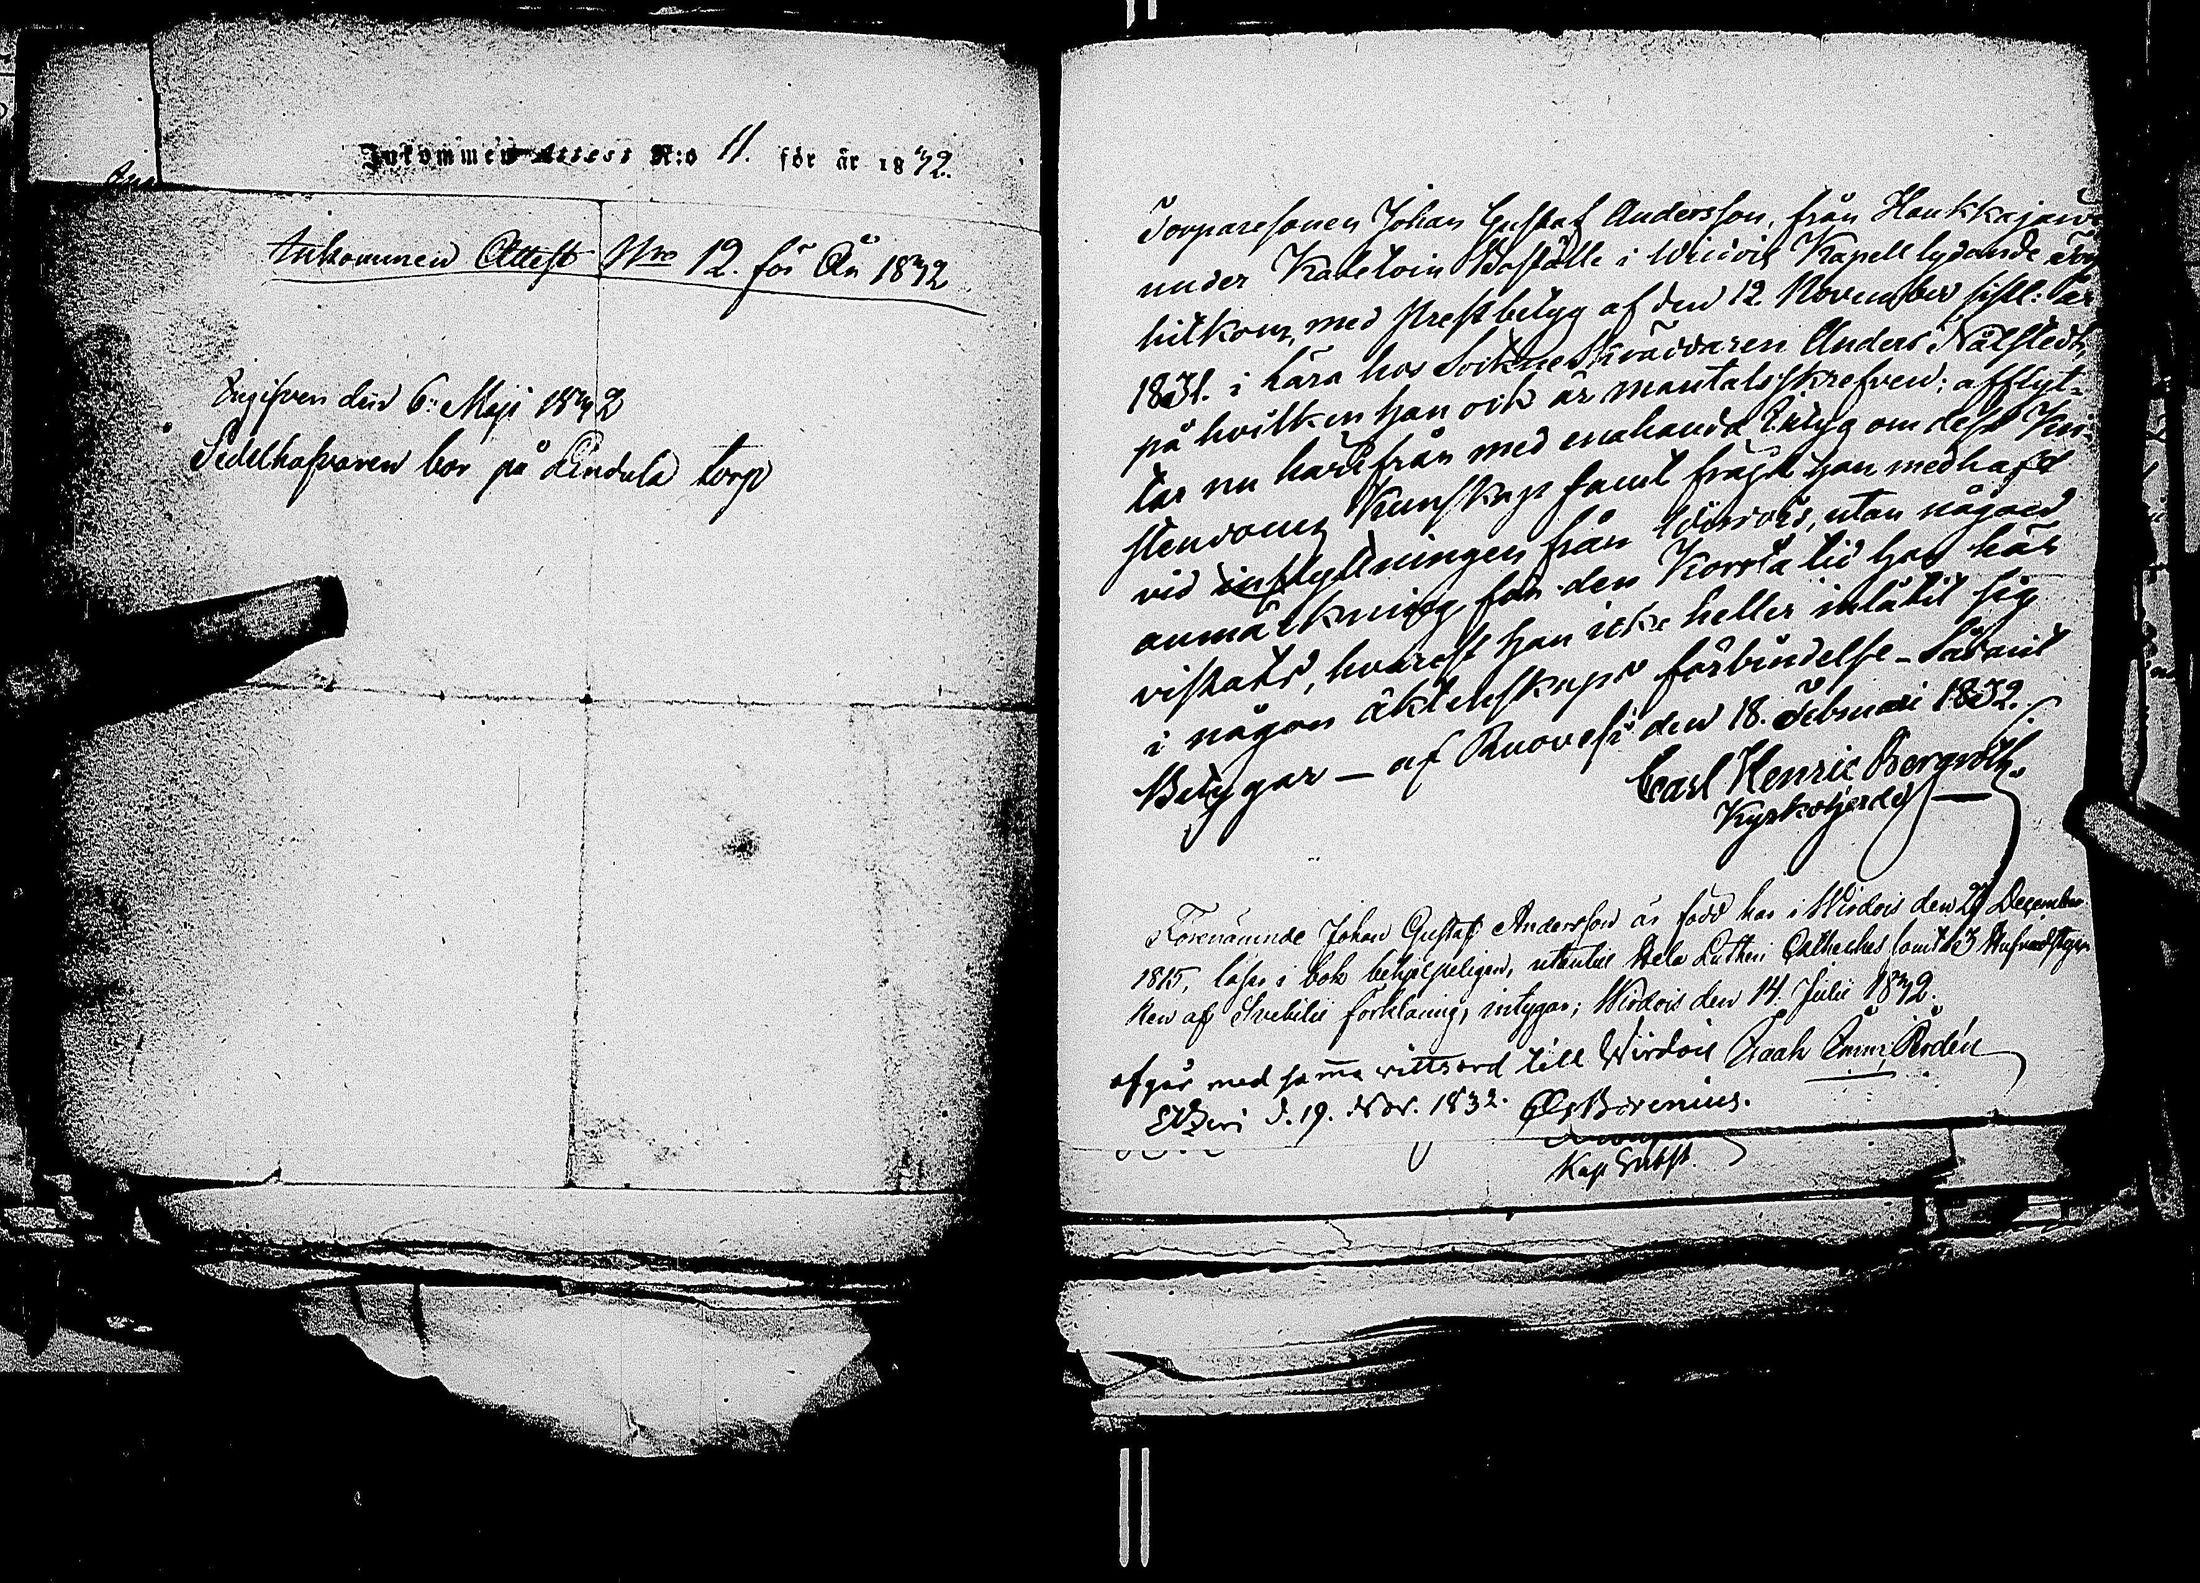 Inkommen Attest N:o 11. för år 1832.
Inkommen Attest Nro 12. för År 1832
Ingifven den 6. Maji 1832
Sedelhafvaren bor på Lindula torp
Torparesonen Johan Gustaf Andersson, från Haukkajärvi
under Kaletoin Boställe i Wirdois Kapell lydande Torp
hitkom, med Prestbetyg af den 12 November sistl: år
1831. i höra hos Sockne Skräddaren Anders Nålstedt,
på hvilken han ock är mantalsskrefven; afflyt-
tar nu härifrån med enahanda Betyg om dess Kri-
stendoms Kunskap samt frägd han medhaft
vid inflyttningen från Wirdois, utan någon
anmärkning för den Korrta tid han här
vistats, hvarest han icke heller inlåtit sig
i någon äktenskaps förbindelse - Sådant
Betygar — af Ruovesi den 18. Februari 1832.
Carl Henric Bergroth.
Kyrkoherde
Förenämnde Johan Gustaf Andersson är född här i Wirdois den 27 December
1815, läser i bok behjelpeligen, utantill hela Lutheri Catheches samt de 3 Hufvudstycken
af Svebilii förklaring, intygar; Wirdois den 14. Julii 1832.
afgår med samma vittsord till Wirdois
Isaak Rosdén
Etseri d. 19. Nov. 1832. Borenius.
Kap Subst.